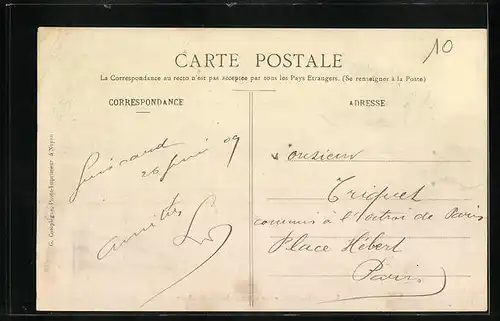 10
CARTE POSTALE
La Correspondance au recto n'est pas acceptée par tous les Pays Etrangers. (Se renseigner à la Poste)
CORRESPONDANCE
ADRESSE
Guérand
26 Juin 09
amitiés
Monsieur
Triquet
commis à l'Octroi de Paris
Place Hébert
Paris